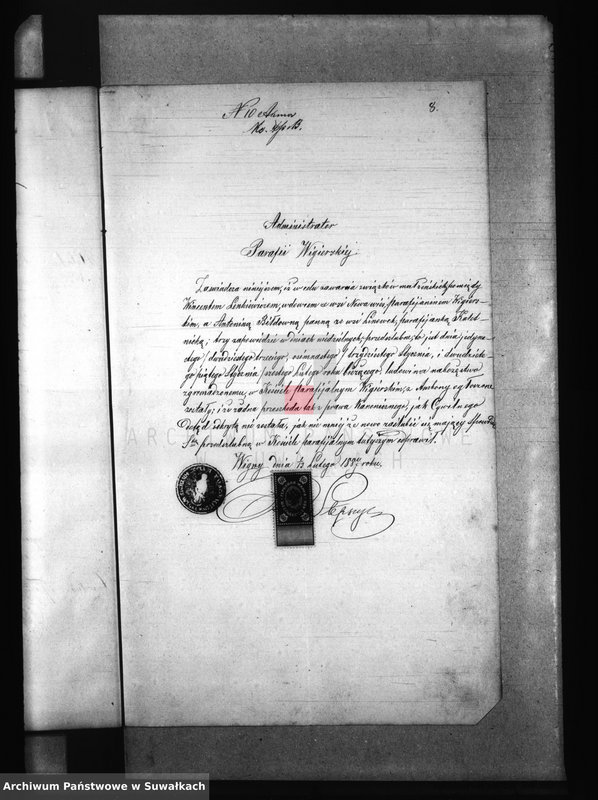 8.
Administrator
Parafii Wigierskiej.
Zawiadamia niniejszem, iż w celu zawarcia związków małżeńskich pomiędzy
Wincentem Linkiewiczem, wdowcem z wsi Nowawieś, Parafijaninem Wigiers-
kim, a Antoniną panną ze wsi Linówek, parafijanką Kalet-
nicką; trzy zapowiedzie w dniach niedzielnych, przedślubne, to jest dnia jedyna-
stego / dwudziestego trzeciego, osiemnastego / trzydziestego Stycznia, i dwudzieste-
go piątego Stycznia / szóstego Lutego roku bieżącego, ludowi na nabożeństwo
zgromadzonemu, w Kościele Parafijalnym Wigierskim, z Ambony ogłoszone
zostały; i że żadna przeszkoda tak z prawa Kanonicznego, jak Cywilnego
Dotąd odkrytą nie została, jak nie mniej że nowo zaślubić się mający
przedślubną w Kościele parafijalnym tutejszym odprawił.
Wigry dnia Lutego 1887 roku.
ARCHIWUM PAŃSTWOWE
W SUWAŁKACH
Archiwum Państwowe w Suwałkach